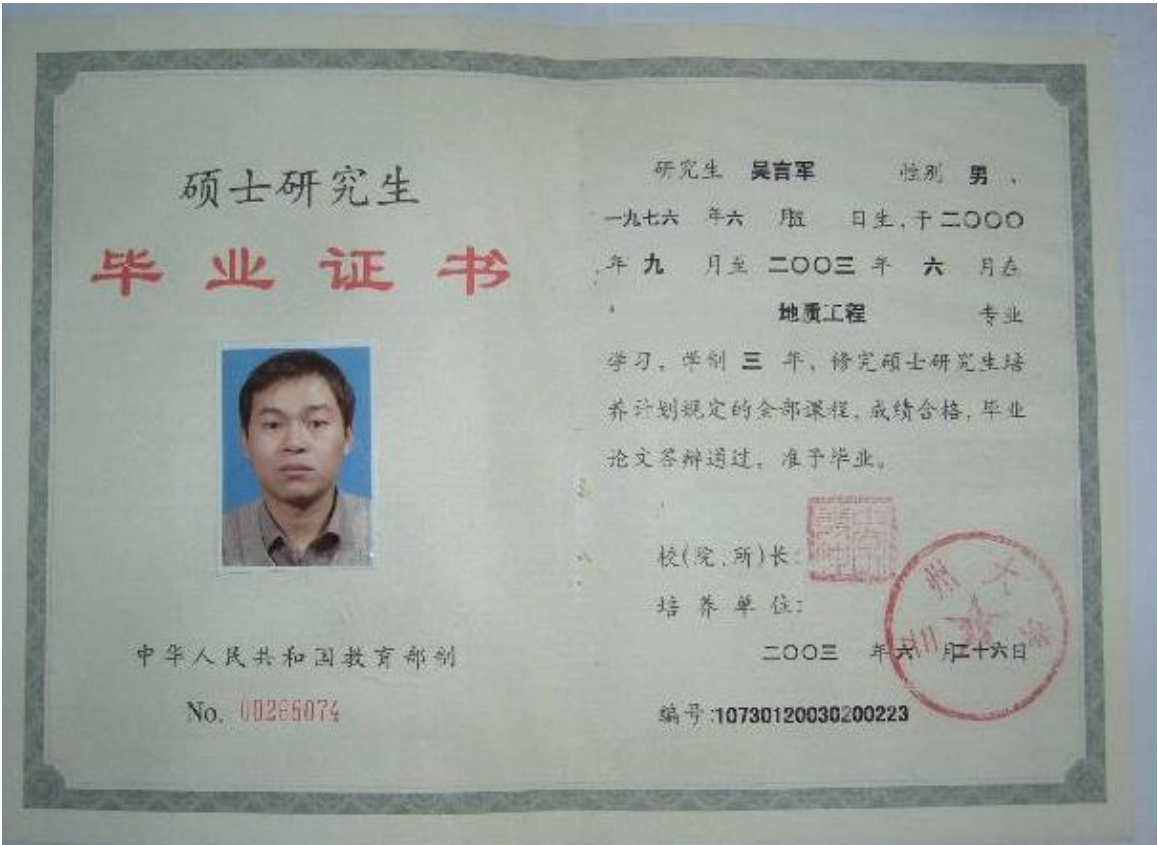 硕士研究生
毕业证书
中华人民共和国教育部制
No. 00266074
研究生 吴言军 性别 男、
一九七六 年六 月五 日生,于二〇〇〇
年 九 月至 二〇〇三 年 六 月在
地质工程 专业
学习,学制 三 年、修完硕士研究生培
养计划规定的全部课程,成绩合格,毕业
论文答辩通过,准予毕业。
校(院、所)长:
培养单位:
二〇〇三 年六 月二十六日
编号:10730120030200223
州大学